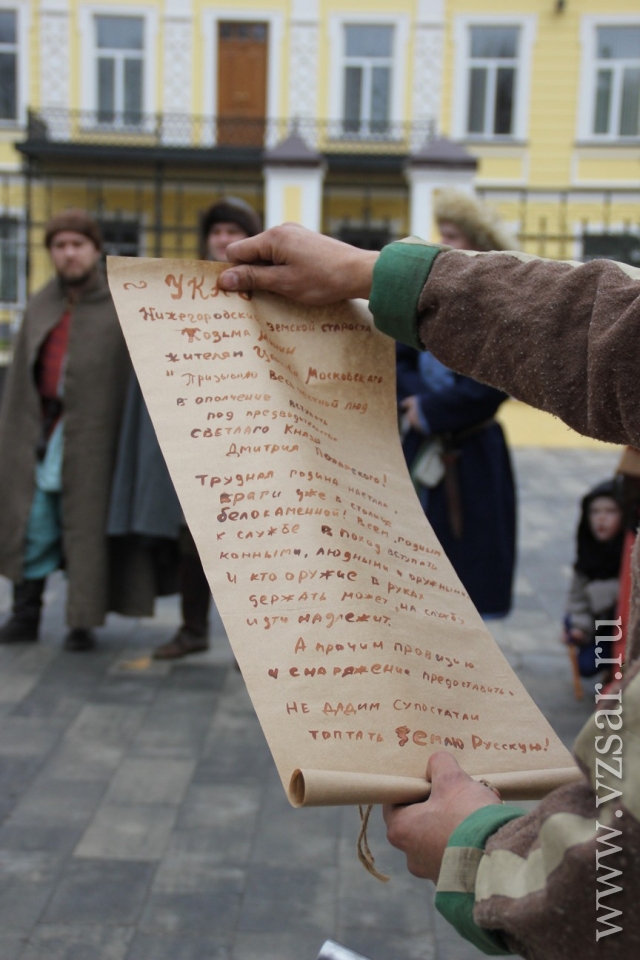 ~ УКАЗ
Нижегородский земской староста
Козьма Минин
жителям Царства Московского
" Призываю весь честной люд
в ополчение вступать
под предводительством
светлаго Князя
Дмитрия Пожарского!
Трудная година настала,
враги уже в столице
белокаменной! Всем, годным
к службе в поход вступать
конными, людными и оружными
и кто оружие в руках
держать может, на службу
идти надлежит.
А прочим провизию
и снаряжение предоставить.
Не дадим супостатам
топтать Землю Русскую!
www.vzsar.ru